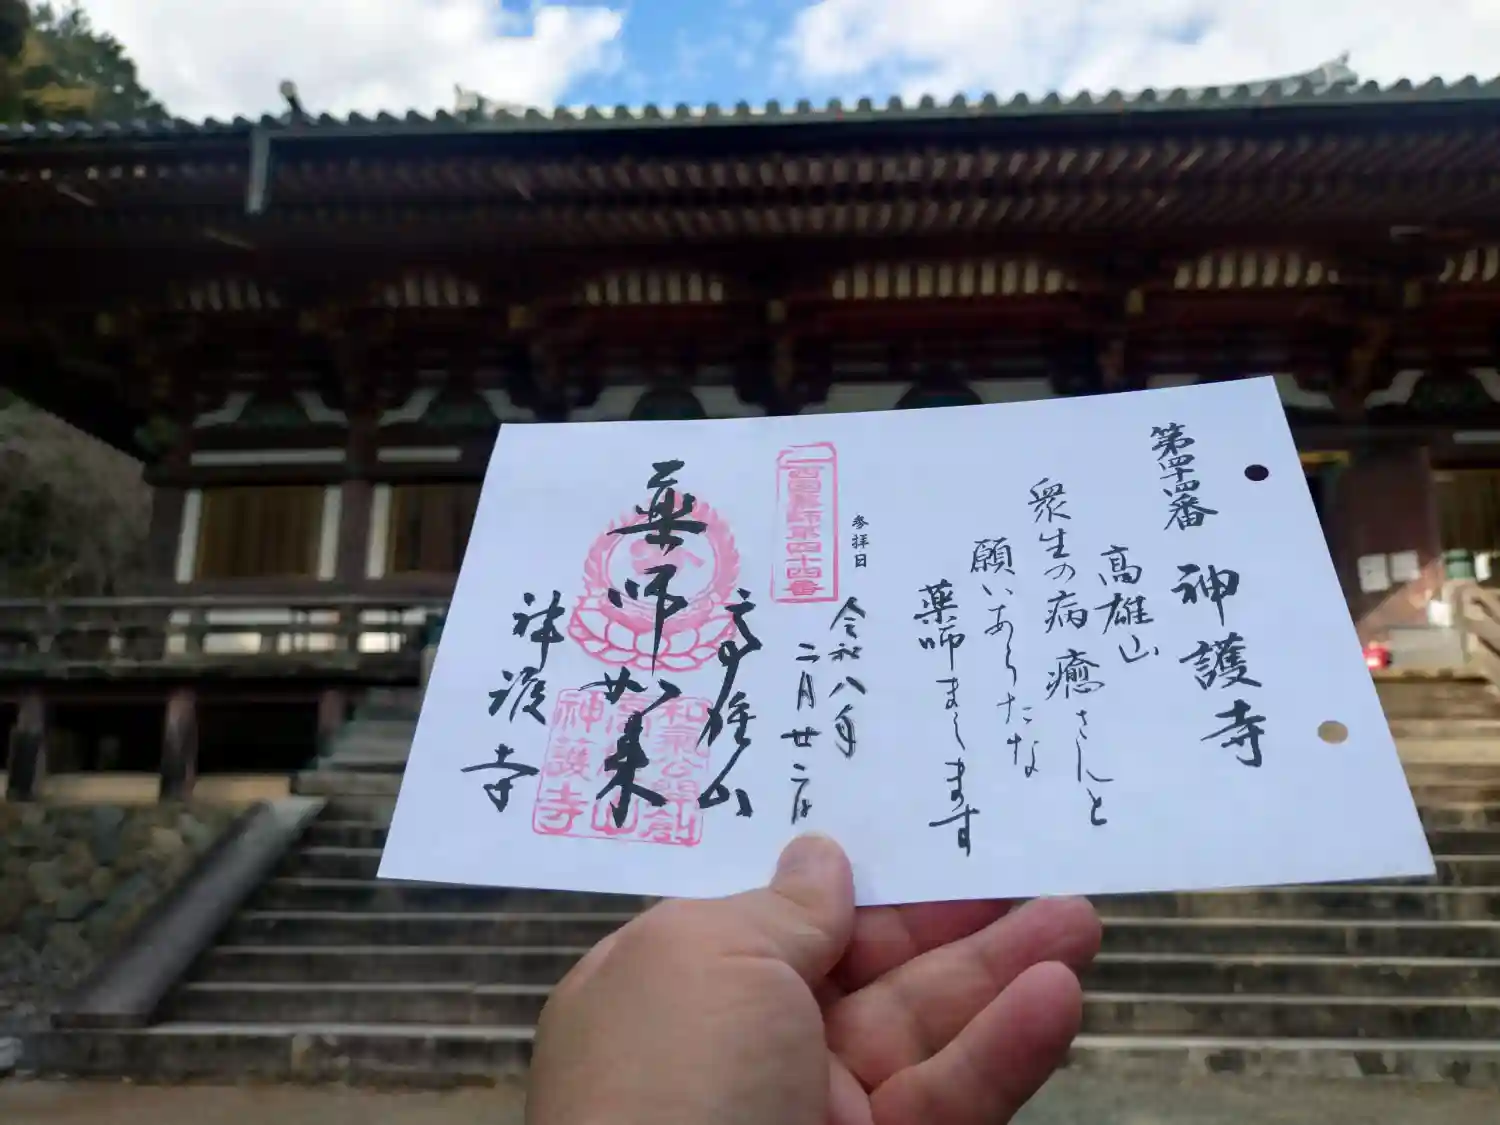 第四十四番 神護寺
高雄山
衆生の病 癒さんと
願いあらたな
薬師まします
参拝日
令和八年
二月廿二日
西国薬師第四十四番
高雄山
薬師如来
神護寺
和氣公開創
高雄山
神護寺